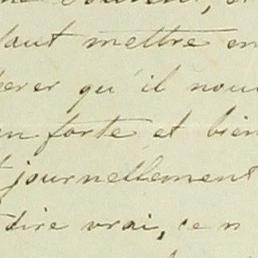 faut mettre en
érer qu'il nous
en forte et bien
journellement
dire vrai, ce n